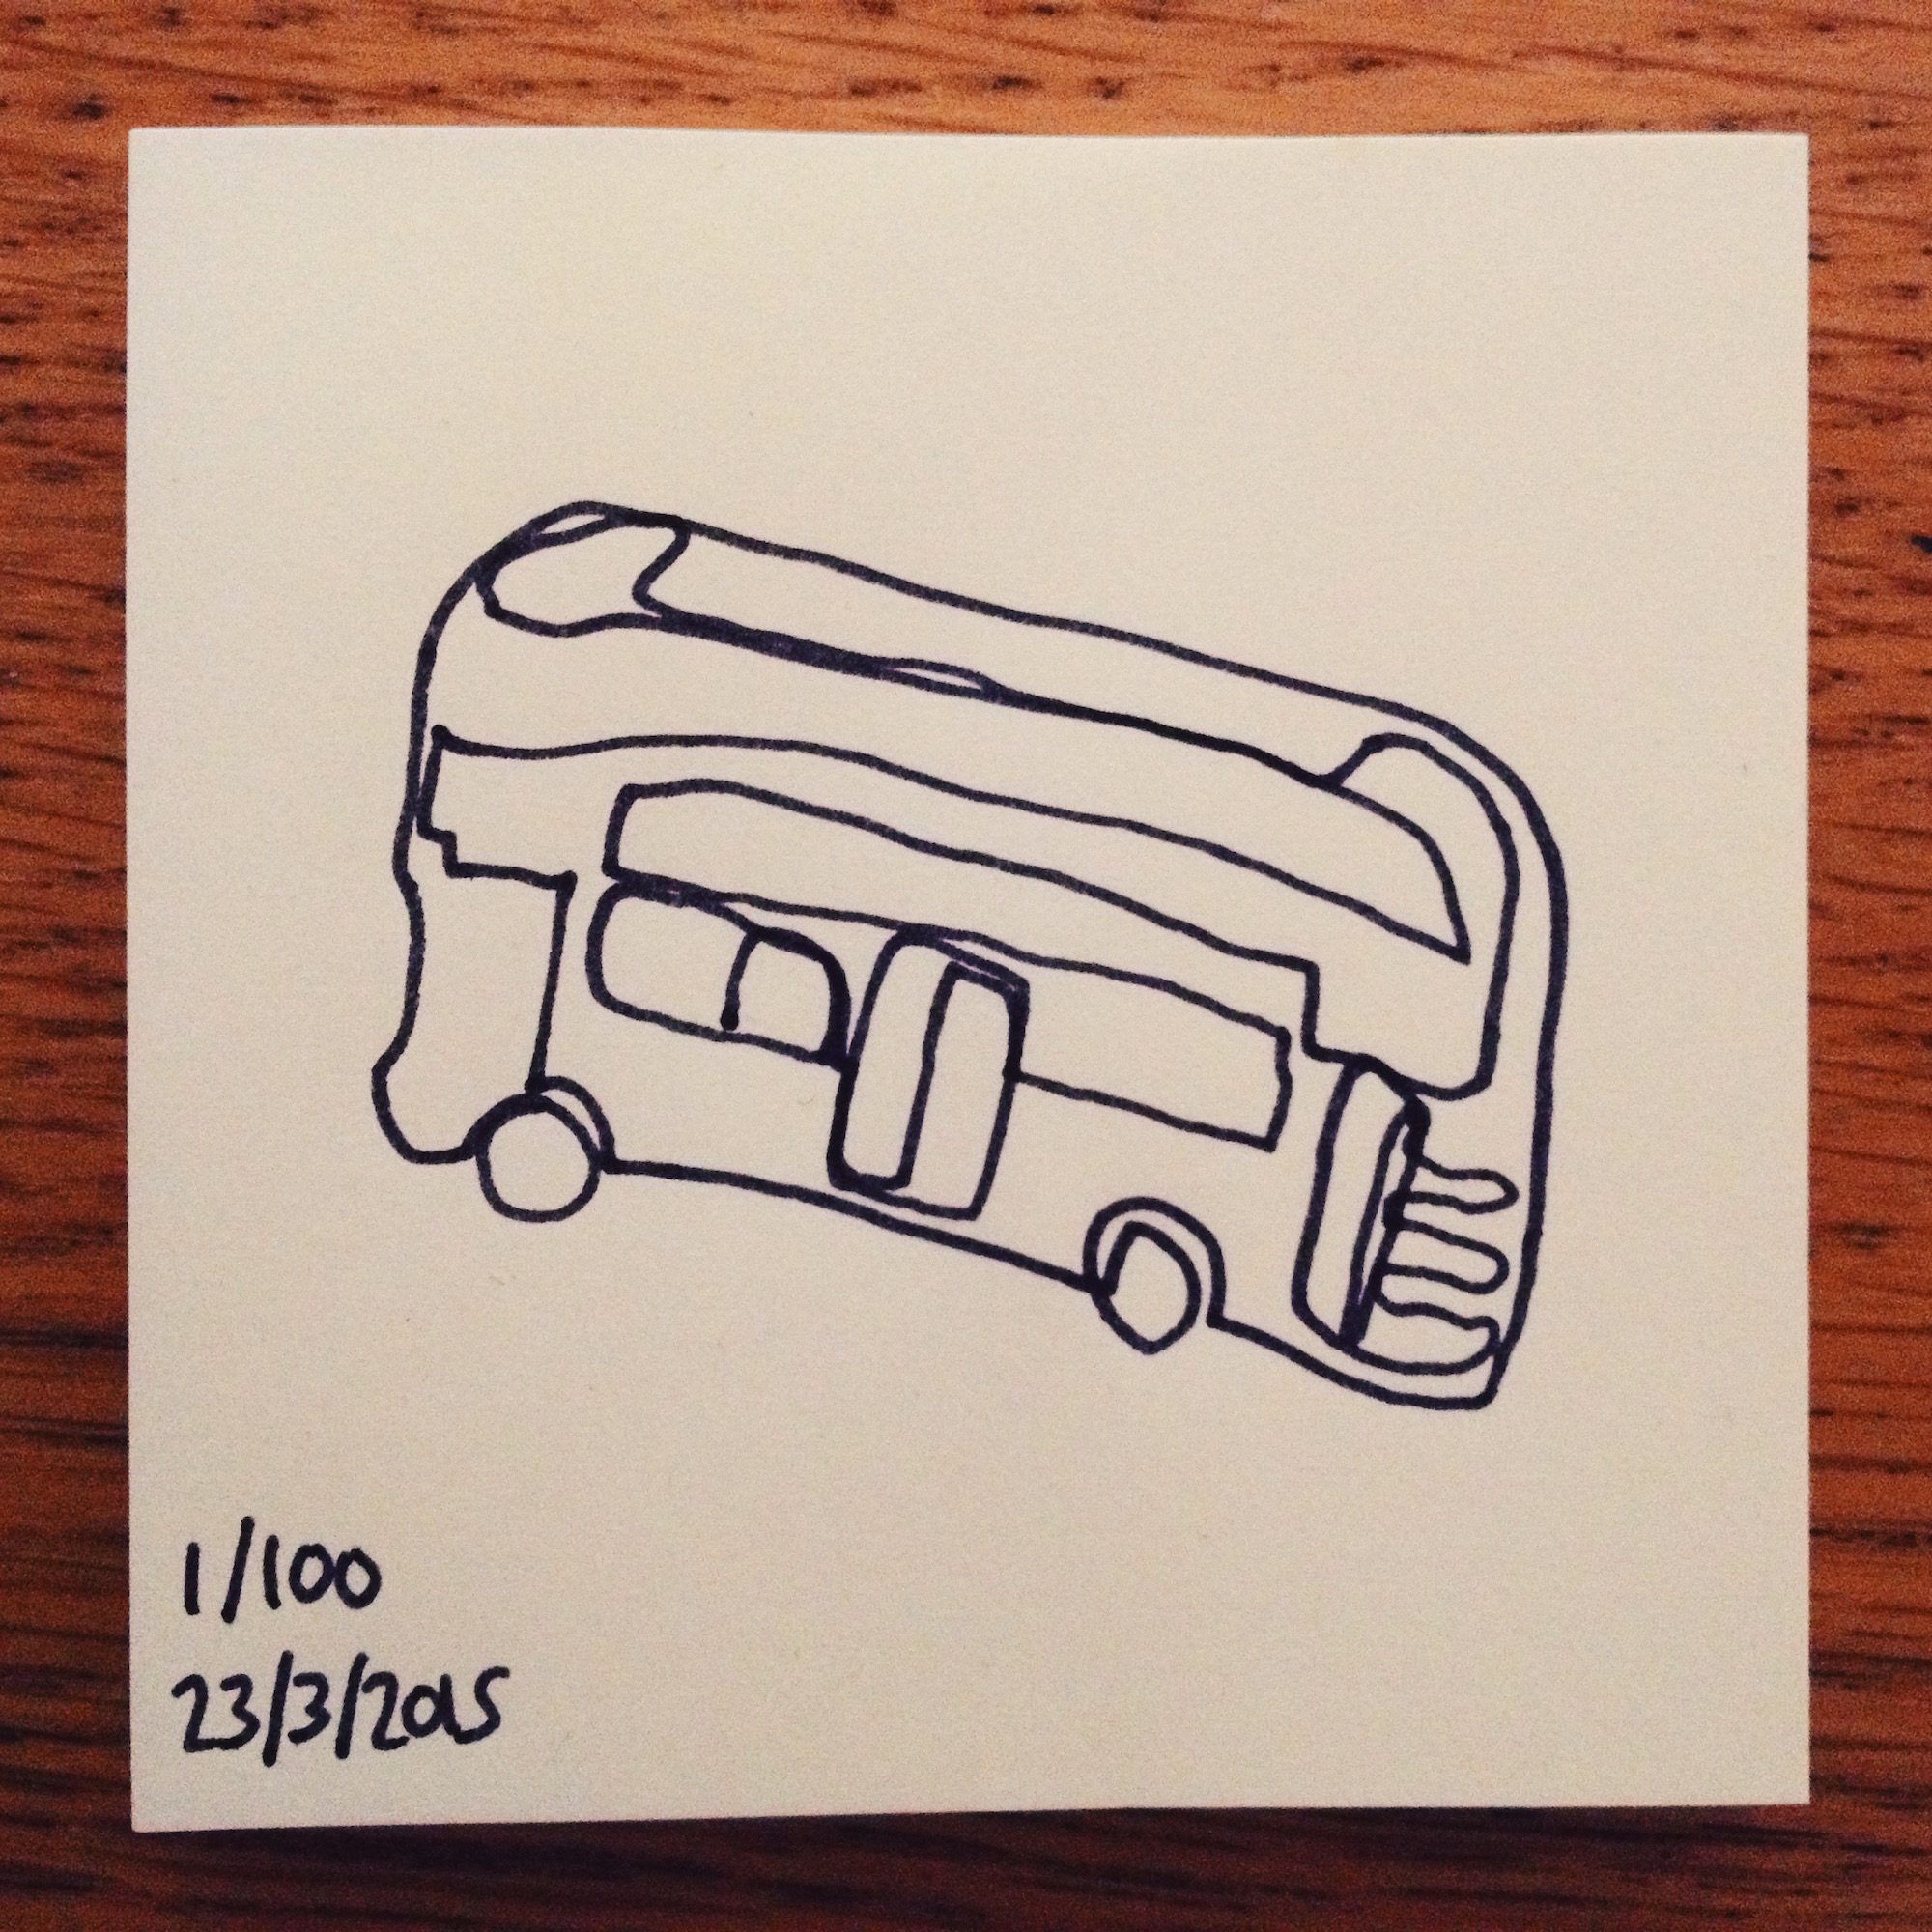 1/100
23/3/2015